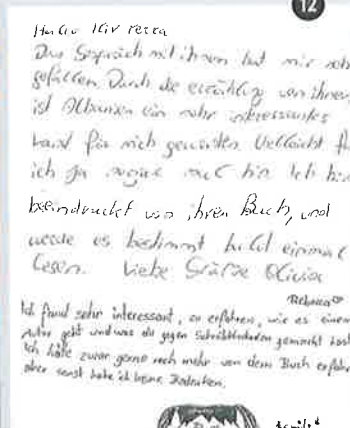 12
Hallo
Das Gespräch mit ihnen hat mir seh
gefallen. Durch die erzählung von ihnen
ist Albanien ein sehr interessantes
Land für mich geworden. Vielleicht f
ich ja sogar mal hin. Ich bin
beeindruckt von ihren Buch, und
werde es bestimmt mal einmal
lesen. Liebe Grüße Olivia
Rebecca
Ich fand sehr interessant, zu erfahren, wie es einem
Autor geht und was du gegen Schreibblockaden gemacht hast.
Ich hätte zwar gerne noch mehr von dem Buch erfahre
aber sonst habe ich keine